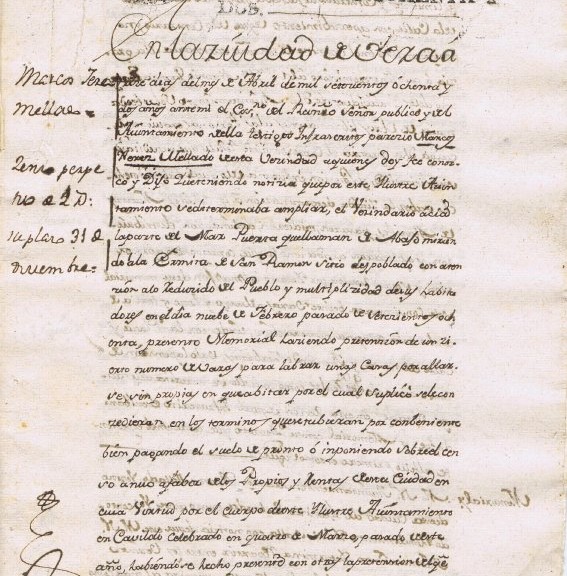 DOS.
En la ziudad de Vera a
Marcos Perez
Mellado
Zenso perpe
tuo de 2 D:
su plazo 31 de
Diziembre
tres dias del mes de Abril de mil setecientos ochenta y
dos años ante mi el Ess.no del Rei nro Señor publico y del
Aiuntamiento de ella testigos Infraescritos parezio Marcos
Perez Mellado de esta Vezindad a quien doy fee conoz-
co y Dijo Que teniendo notizia que por este Ylustre Aiun-
tamiento se determinaba ampliar, el Vezindario azia
la parte del Mar Puerta que llaman de Abajo miran
do a la Ermita de San Ramon sitio despoblado con aten
zion a lo reduzido del Pueblo y multiplizidad de sus habita
dores en el dia nuebe de Febrero pasado de setezientos och
enta, presento Memorial haziendo pretension de un zi-
erto numero de Varas para labrar unas Casas por allar-
se sin propias en que abitar por el cual suplicó sele con
zedieran en los terminos que se tubieran por combeniente
bien pagando el suelo de pronto ó inponiendo sobre el cen
so anuo a fabor de los Propios y Rentas de esta Ciudad en
cuia Virtud por el cuerpo de este Ylustre Aiuntamiento
en Cavildo Celebrado en quatro de Marzo, pasado de este
año, habiendose hecho presente con otras la pretension del ge